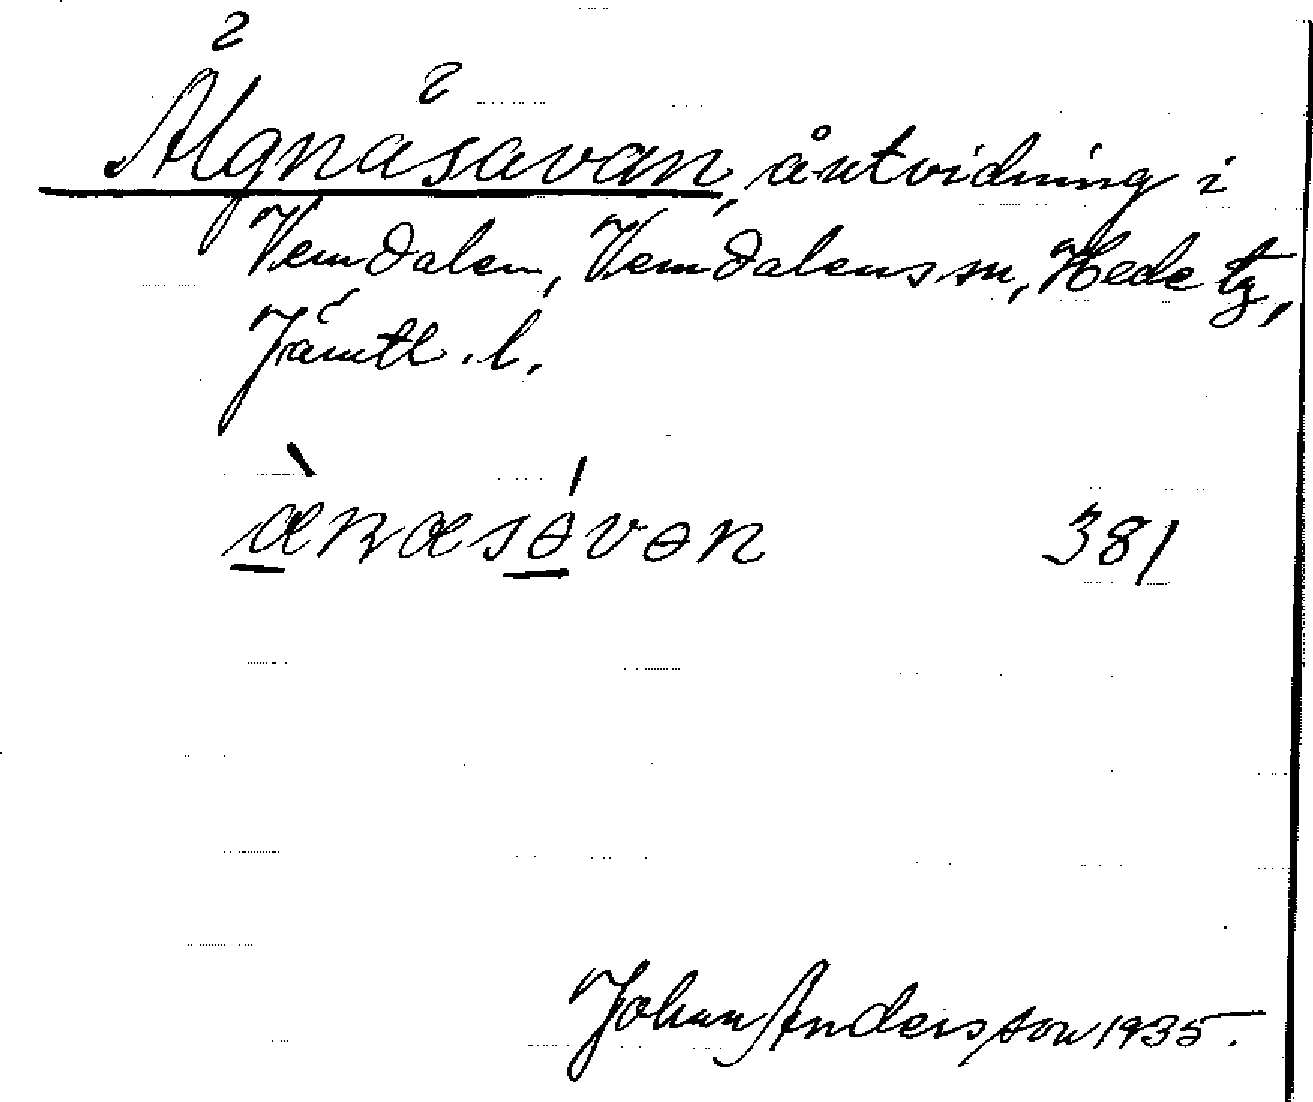 Älgnäsavan, åutvidning i
Vemdalen, Vemdalens sn, Hede tg,
Jämtl. l.
æ̀næsə́vən 381
Johan Andersson 1935.